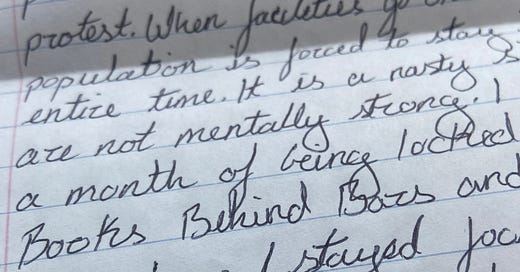 protest. When facilities go on
population is forced to stay
entire time. It is a nasty
are not mentally strong. I
a month of being locked
Books Behind Bars and
I stayed foc